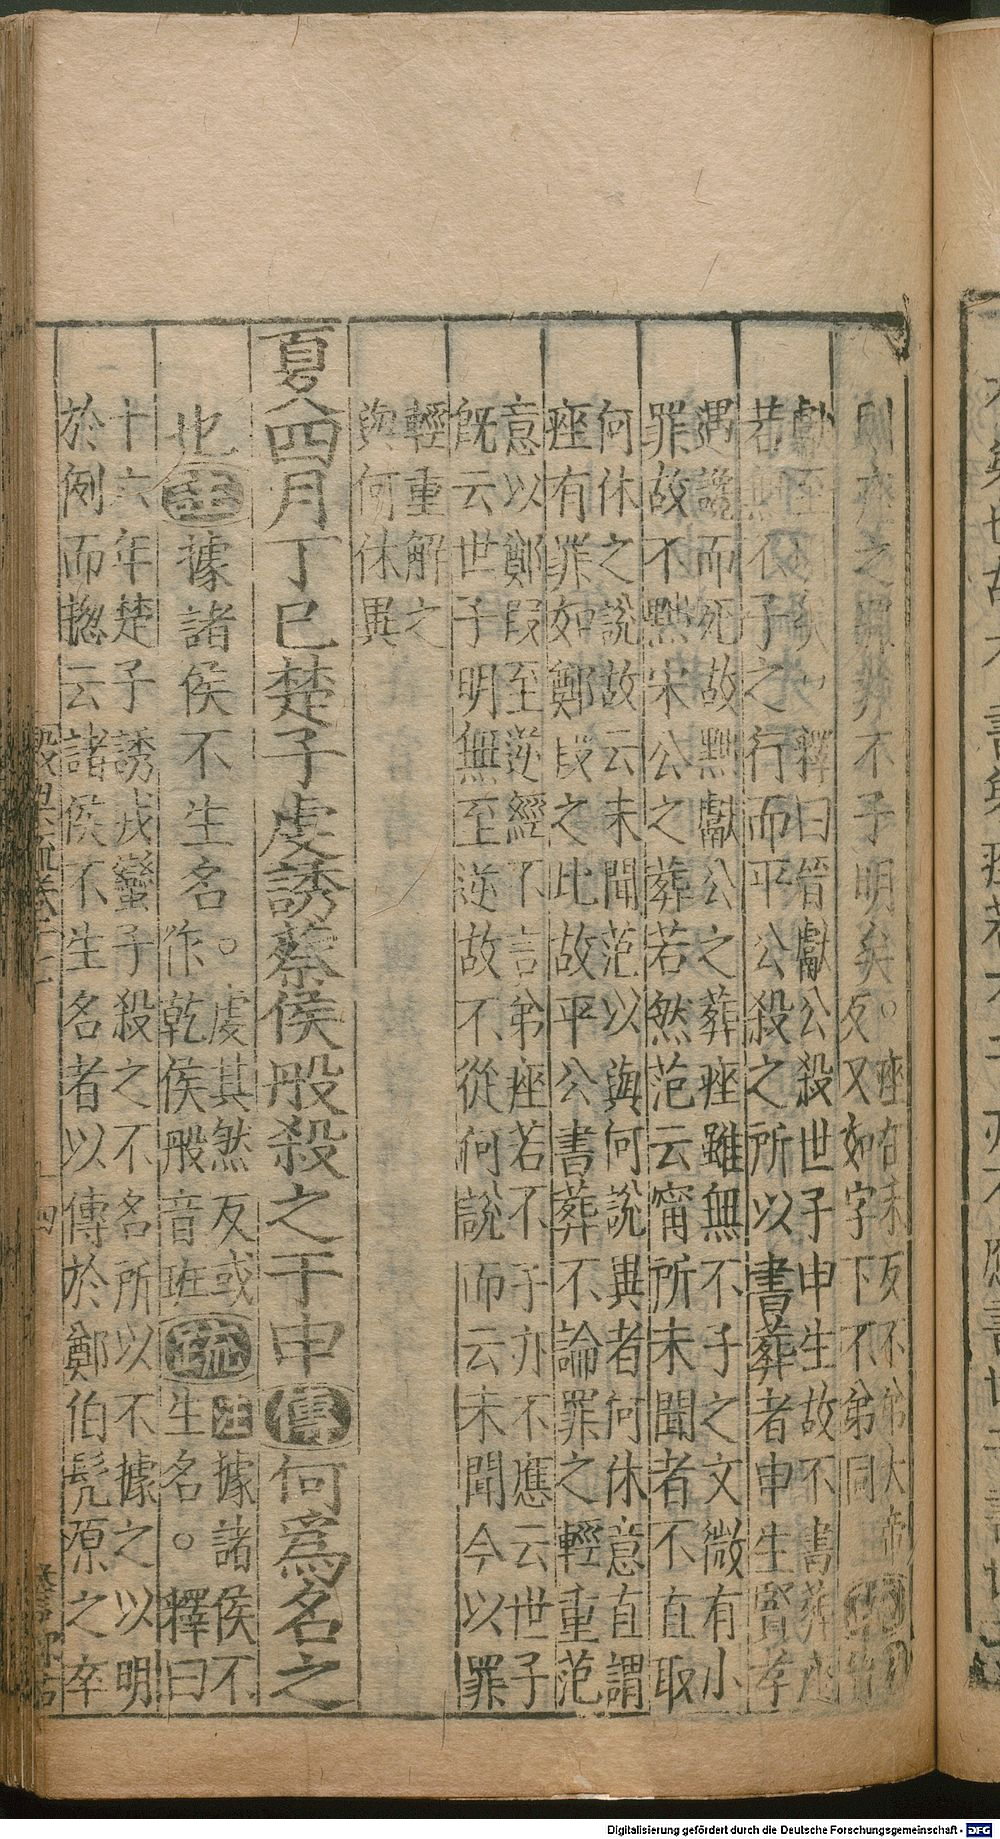 則座之罪葬不子明矣。
座在禾反不弟大帝
反又如字下不弟同
釋曰晉獻公殺世子申生故不書葬
不子之行而平公殺之所以書葬者申生賢孝
遇讒而死故黜獻公之葬痤雖無不子之文微有小
罪故不黜宋公之葬若然范云甯所未聞者不直取
何休之說故云未聞范以與何說異者何休意直謂
痤有罪如鄭段之比故平公書葬不論罪之輕重范
意以鄭段至逆經不言弟痤若不子亦不應云世子
旣云世子明無至逆故不從何說而云未聞今以罪
輕重解之
與何休異
夏四月丁巳楚子虔誘蔡侯般殺之于申傳何爲名之
也注據諸侯不生名。
虔其然反或
作乾侯般音班
疏
注據諸侯不
生名。釋曰
十六年楚子誘戎蠻子殺之不名所以不據之以明
於例而揔云諸侯不生名者以傳於鄭伯髡原之卒
Digitalisierung gefördert durch die Deutsche Forschungsgemeinschaft - DFG